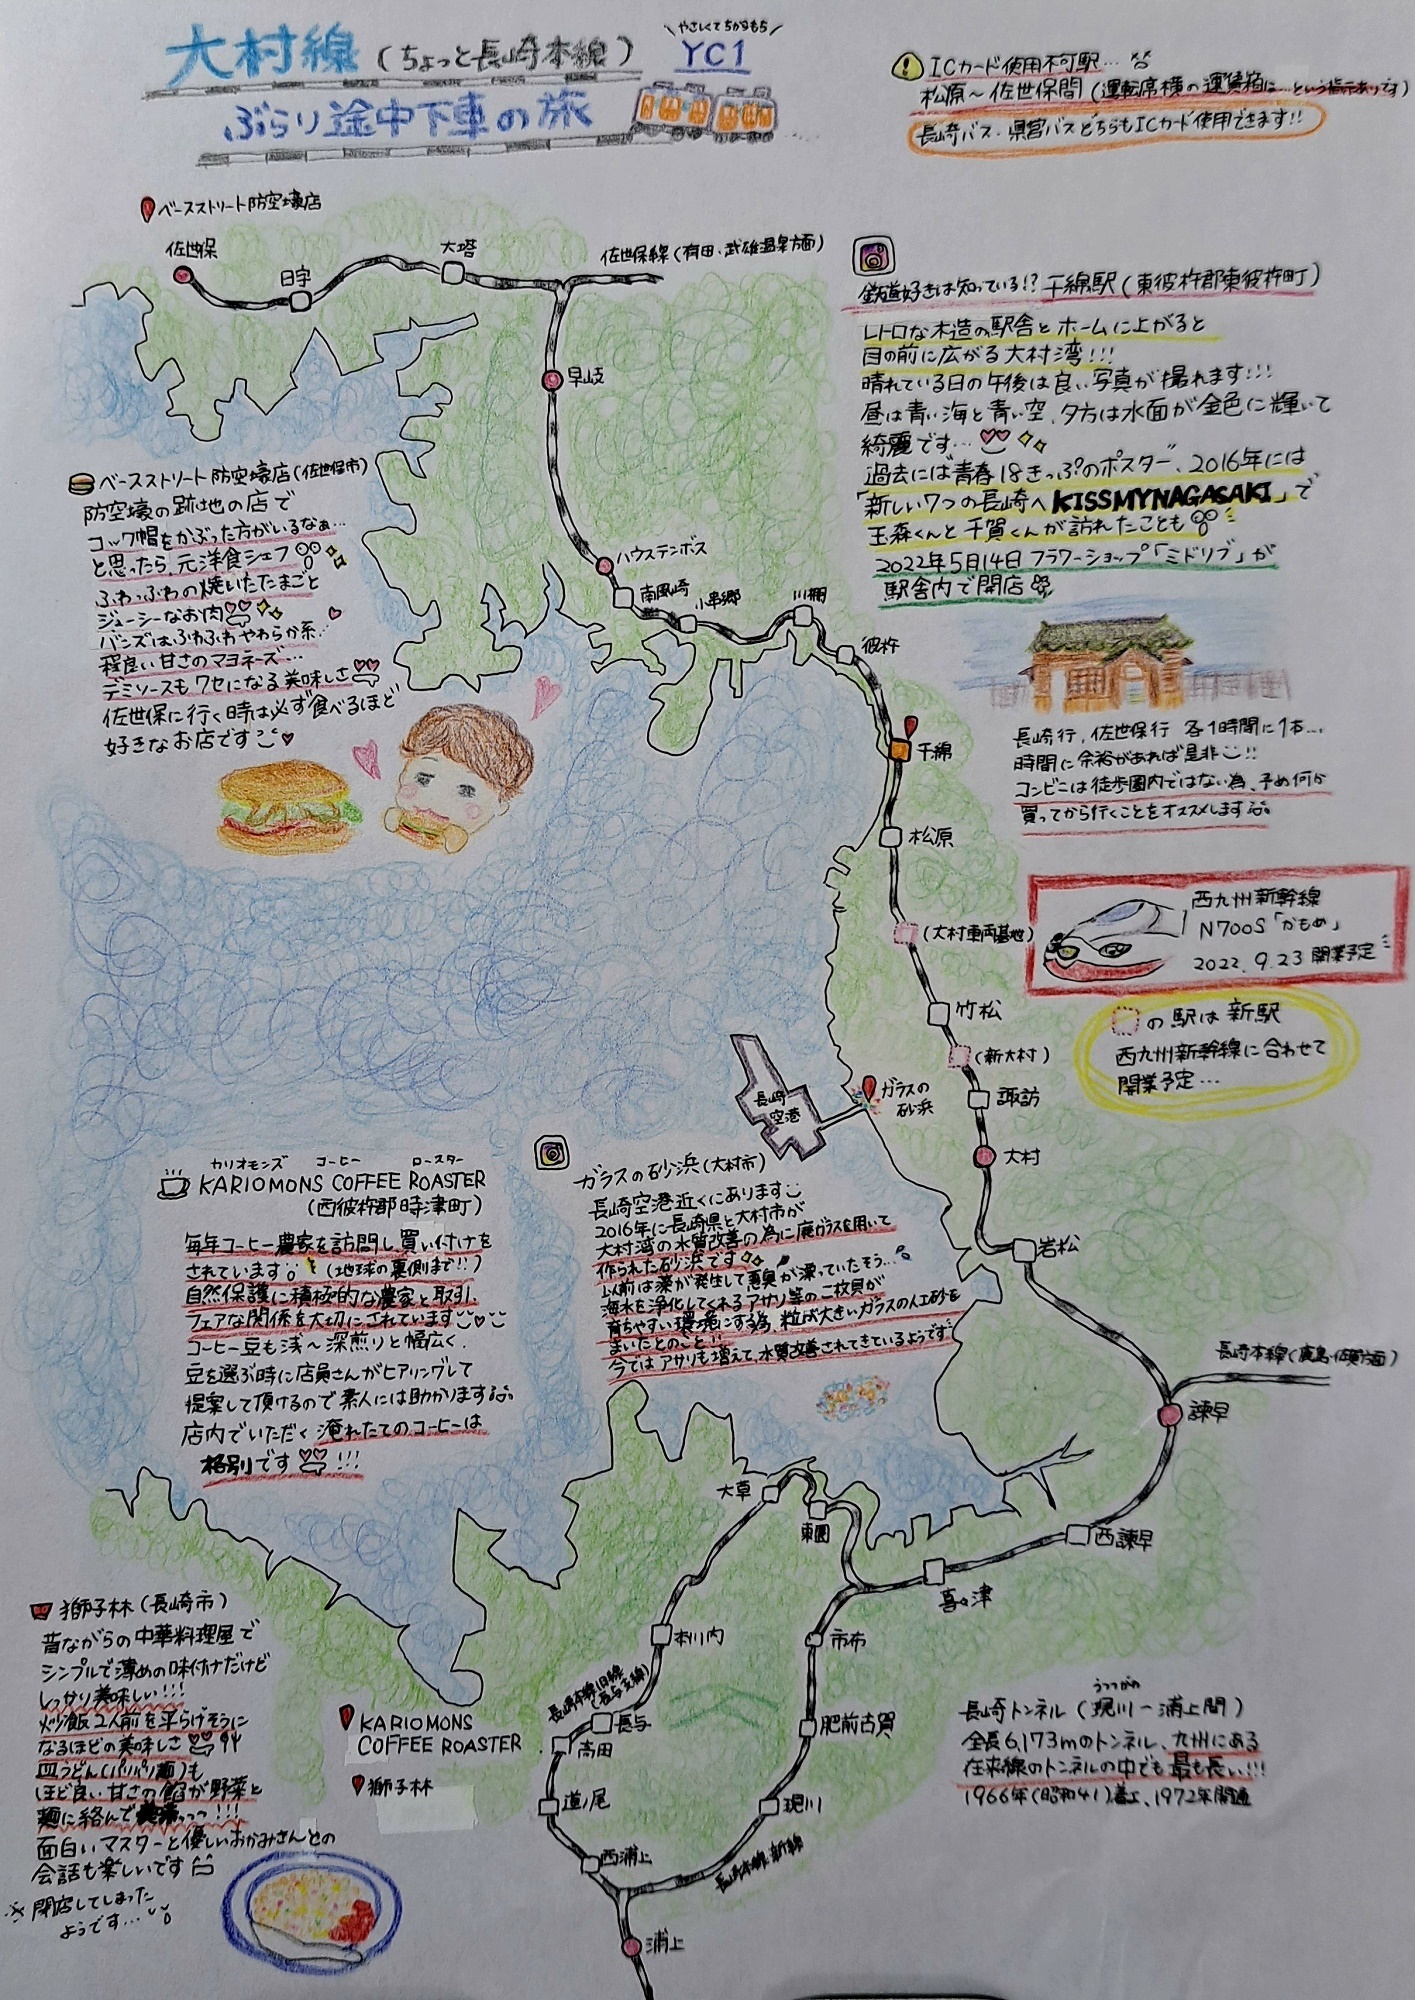 大村線(ちょっと長崎本線)
ぶらり途中下車の旅
\やさしくてちからもち/
YC1
ICカード使用不可駅…
松原~佐世保間(運転席横の運賃箱に…という指示ありです)
長崎バス・県営バスどちらもICカード使用できます!!
ベースストリート防空壕店
佐世保
日宇
大塔
佐世保線(有田・武雄温泉方面)
早岐
ハウステンボス
南風崎
小串郷
川棚
彼杵
千綿
松原
(大村車両基地)
竹松
(新大村)
諏訪
大村
岩松
長崎本線(鹿島・佐賀方面)
諫早
西諫早
喜々津
東園
大草
本川内
長崎本線旧線
(長与支線)
長与
高田
道ノ尾
西浦上
浦上
市布
肥前古賀
現川
長崎本線新線
長崎
空港
ガラスの
砂浜
鉄道好きは知っている!?千綿駅(東彼杵郡東彼杵町)
レトロな木造の駅舎とホームに上がると
目の前に広がる大村湾!!!
晴れている日の午後は良い写真が撮れます!!!
昼は青い海と青い空、夕方は水面が金色に輝いて
綺麗です…
過去には青春18きっぷのポスター、2016年には
「新しい7つの長崎へKISSMYNAGASAKI」で
玉森くんと千賀くんが訪れたことも
2022年5月14日フラワーショップ「ミドリブ」が
駅舎内で開店
長崎行、佐世保行 各1時間に1本…
時間に余裕があれば是非!!
コンビニは徒歩圏内ではない為、予め何か
買ってから行くことをオススメします
西九州新幹線
N700S「かもめ」
2022.9.23開業予定
の駅は新駅
西九州新幹線に合わせて
開業予定…
ベースストリート防空壕店(佐世保市)
防空壕の跡地の店で
コック帽をかぶった方がいるなぁ…
と思ったら、元洋食シェフ
ふわっふわの焼いたたまごと
ジューシーなお肉
バンズはふわふわやわらか系
程良い甘さのマヨネーズ…
デミソースもクセになる美味しさ
佐世保に行く時は必ず食べるほど
好きなお店です
カリオモンズ コーヒー ロースター
KARIOMONS COFFEE ROASTER
(西彼杵郡時津町)
毎年コーヒー農家を訪問し、買い付けを
されています(地球の裏側まで!!)
自然保護に積極的な農家と取引、
フェアな関係を大切にされています
コーヒー豆も浅~深煎りと幅広く、
豆を選ぶ時に店員さんがヒアリングして
提案して頂けるので素人には助かります
店内でいただく淹れたてのコーヒーは
格別です!!!
ガラスの砂浜(大村市)
長崎空港近くにあります
2016年に長崎県と大村市が
大村湾の水質改善の為に廃ガラスを用いて
作られた砂浜です
以前は藻が発生して悪臭が漂っていたそう…
海水を浄化してくれるアサリ等の二枚貝が
育ちやすい環境にする為、粒が大きいガラスの人工砂を
まいたとのこと!!
今ではアサリも増えて、水質改善されてきているようです
獅子林(長崎市)
昔ながらの中華料理屋で
シンプルで薄めの味付けだけど
しっかり美味しい!!!
炒飯2人前を平らげそうに
なるほどの美味しさ
皿うどん(パリパリ麺)も
ほど良い甘さの餡が野菜と
麺に絡んで
面白いマスターと優しいおかみさんとの
会話も楽しいです
※閉店してしまった
ようです…
KARIOMONS
COFFEE ROASTER
獅子林
うつつがわ
長崎トンネル(現川~浦上間)
全長6,173mのトンネル、九州にある
在来線のトンネルの中でも最も長い!!!
1966年(昭和41)着工、1972年開通